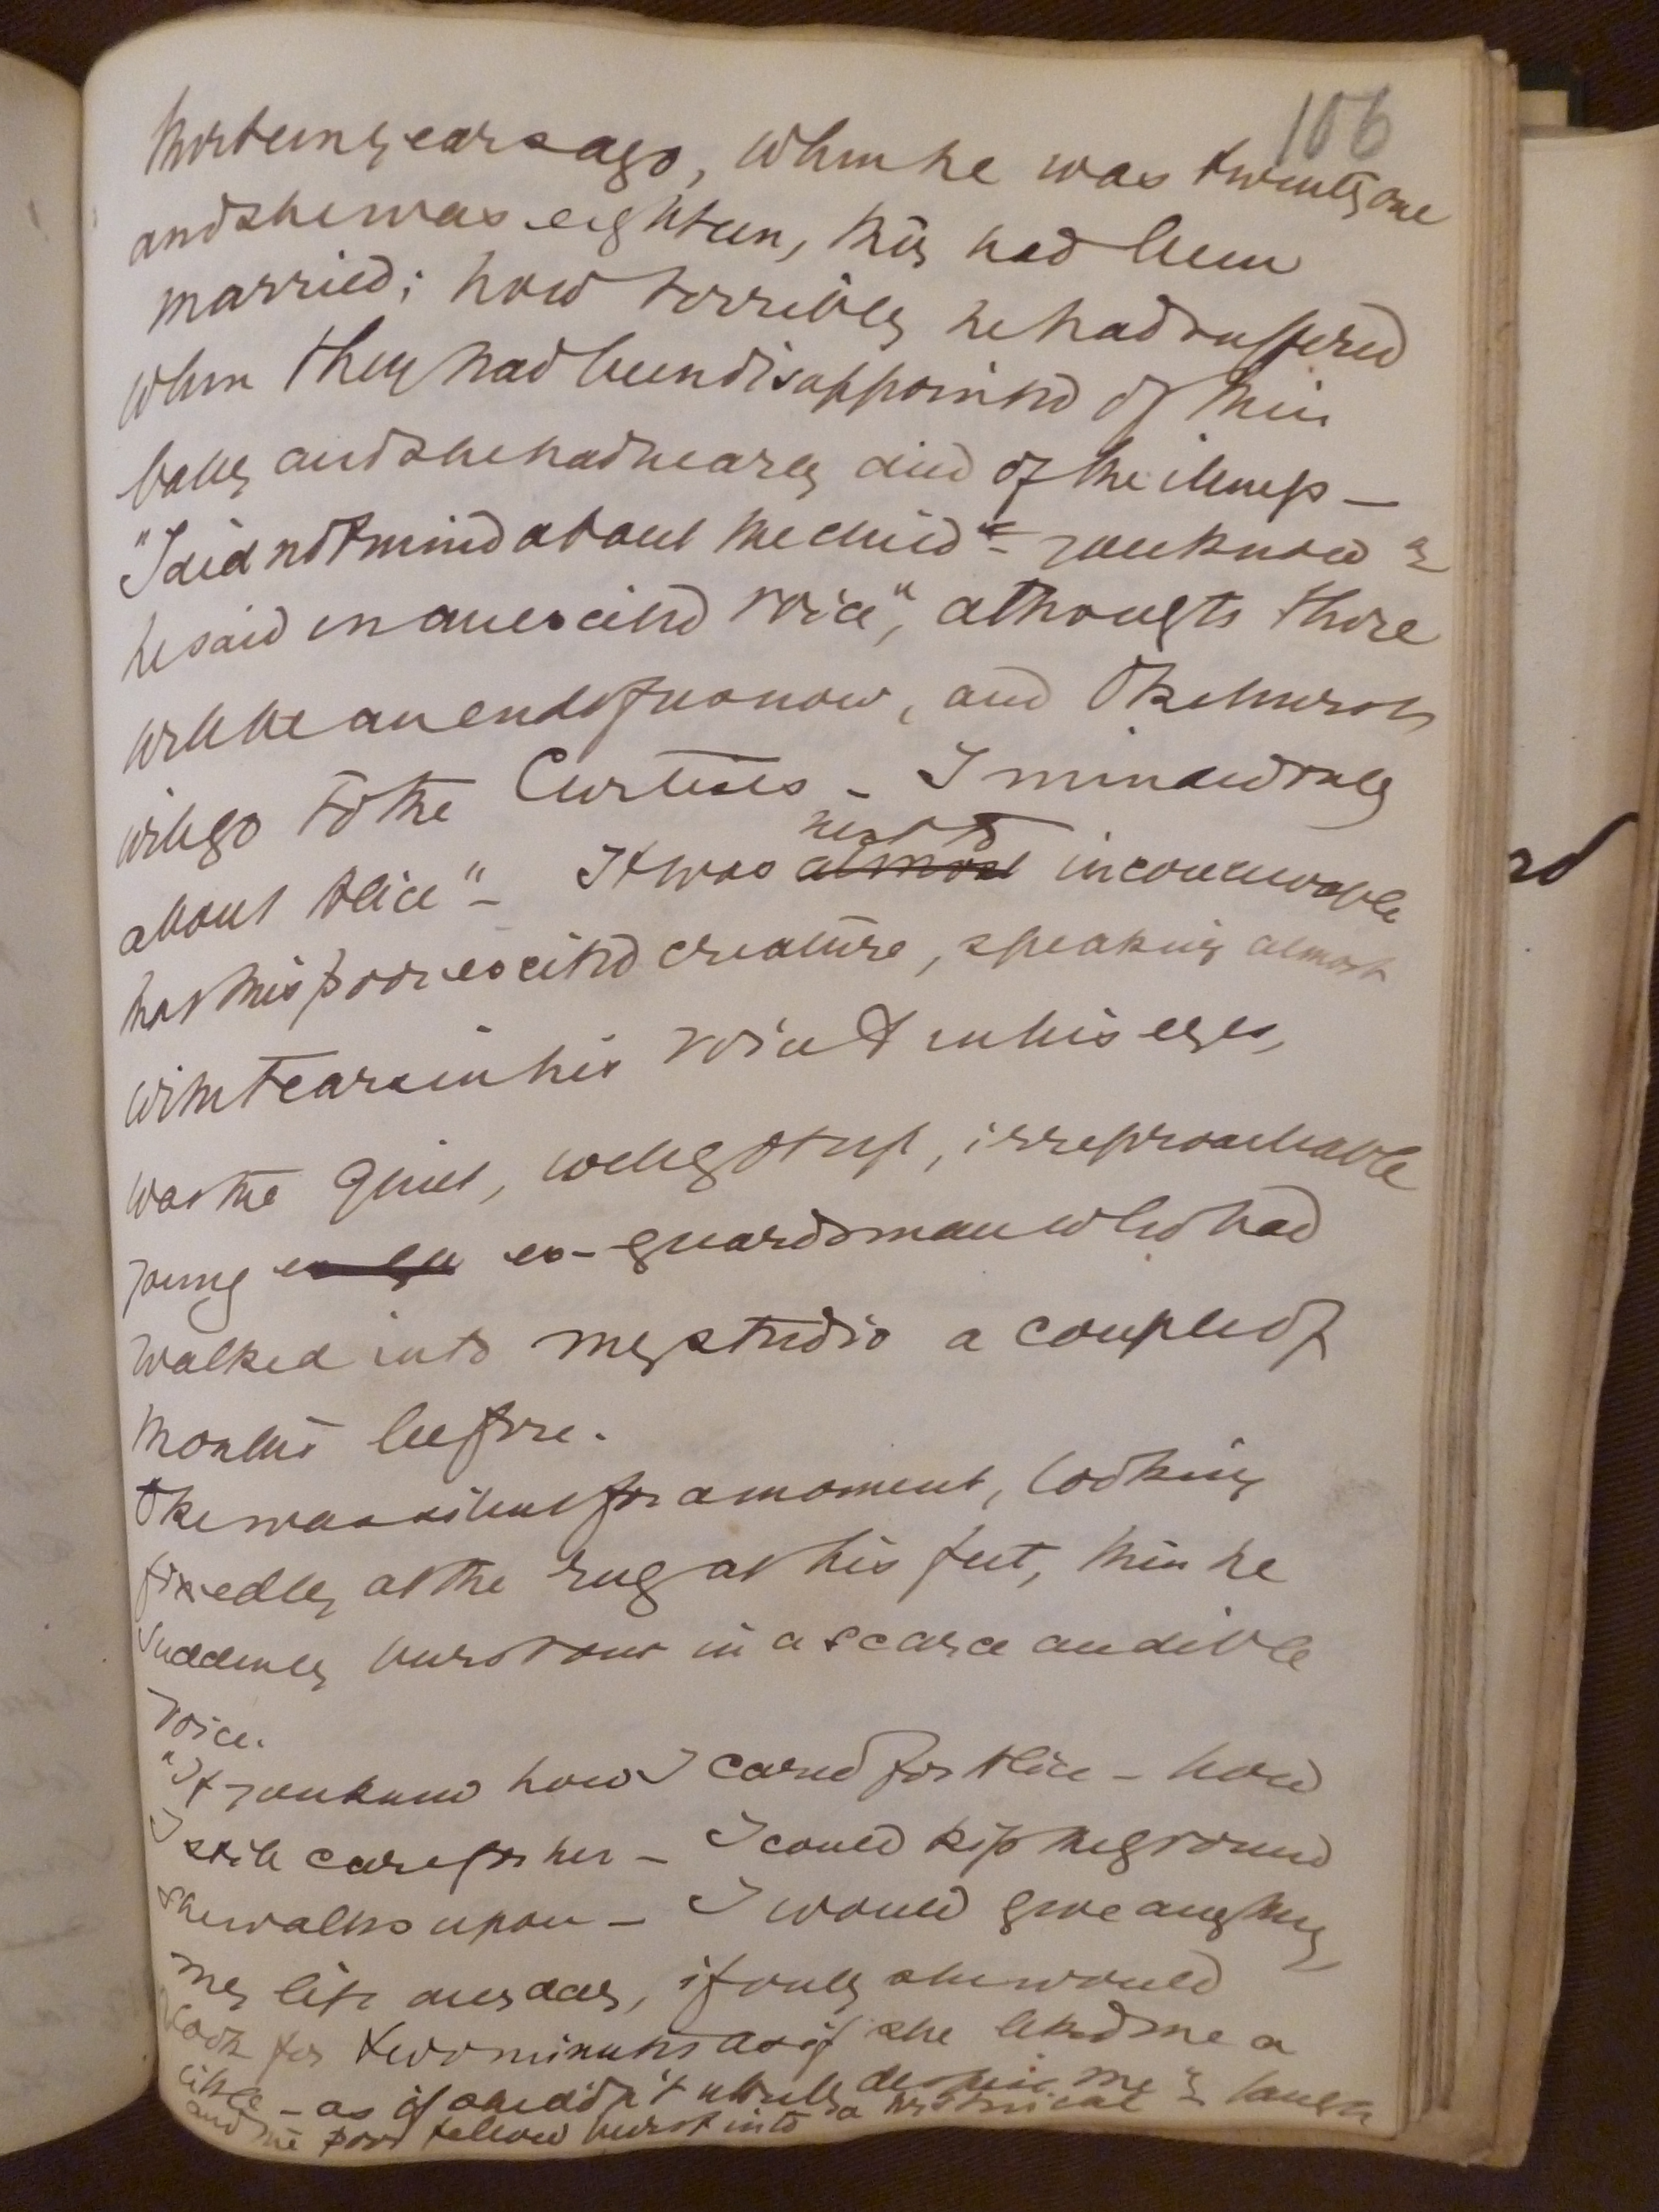 106
thirteen years ago, when he was twenty one
and she was eighteen, they had been
married; how terribly he had suffered
when they had been disappointed of their
baby and she had nearly died of the illness –
"I did not mind about the child – you know"
he said in an excited voice", athougts there
will be an end of us now, and Okehurst
will go to the Curtises – I minded only
about Alice" – It was next to
almost inconceivable
that this poor excited creature, speaking almost
with tears in his voice & in his eyes,
was the quiet, well got up, irreproachable
young ex gu ex-guardsman who had
walked into my studio a couple of
months before.
Oke was silent for a moment, looking
fixedly at the rug at his feet, then he
suddenly burst out in a scarce audible
voice.
"If you knew how I cared for Alice – how
I still care for her – I could kiss the ground
she walks upon – I would give anything
my life any day, if only she would
look for two minutes as if she liked me a
little – as if she didn't utterly despise me" –
and the poor fellow burst into a hysterical laugh